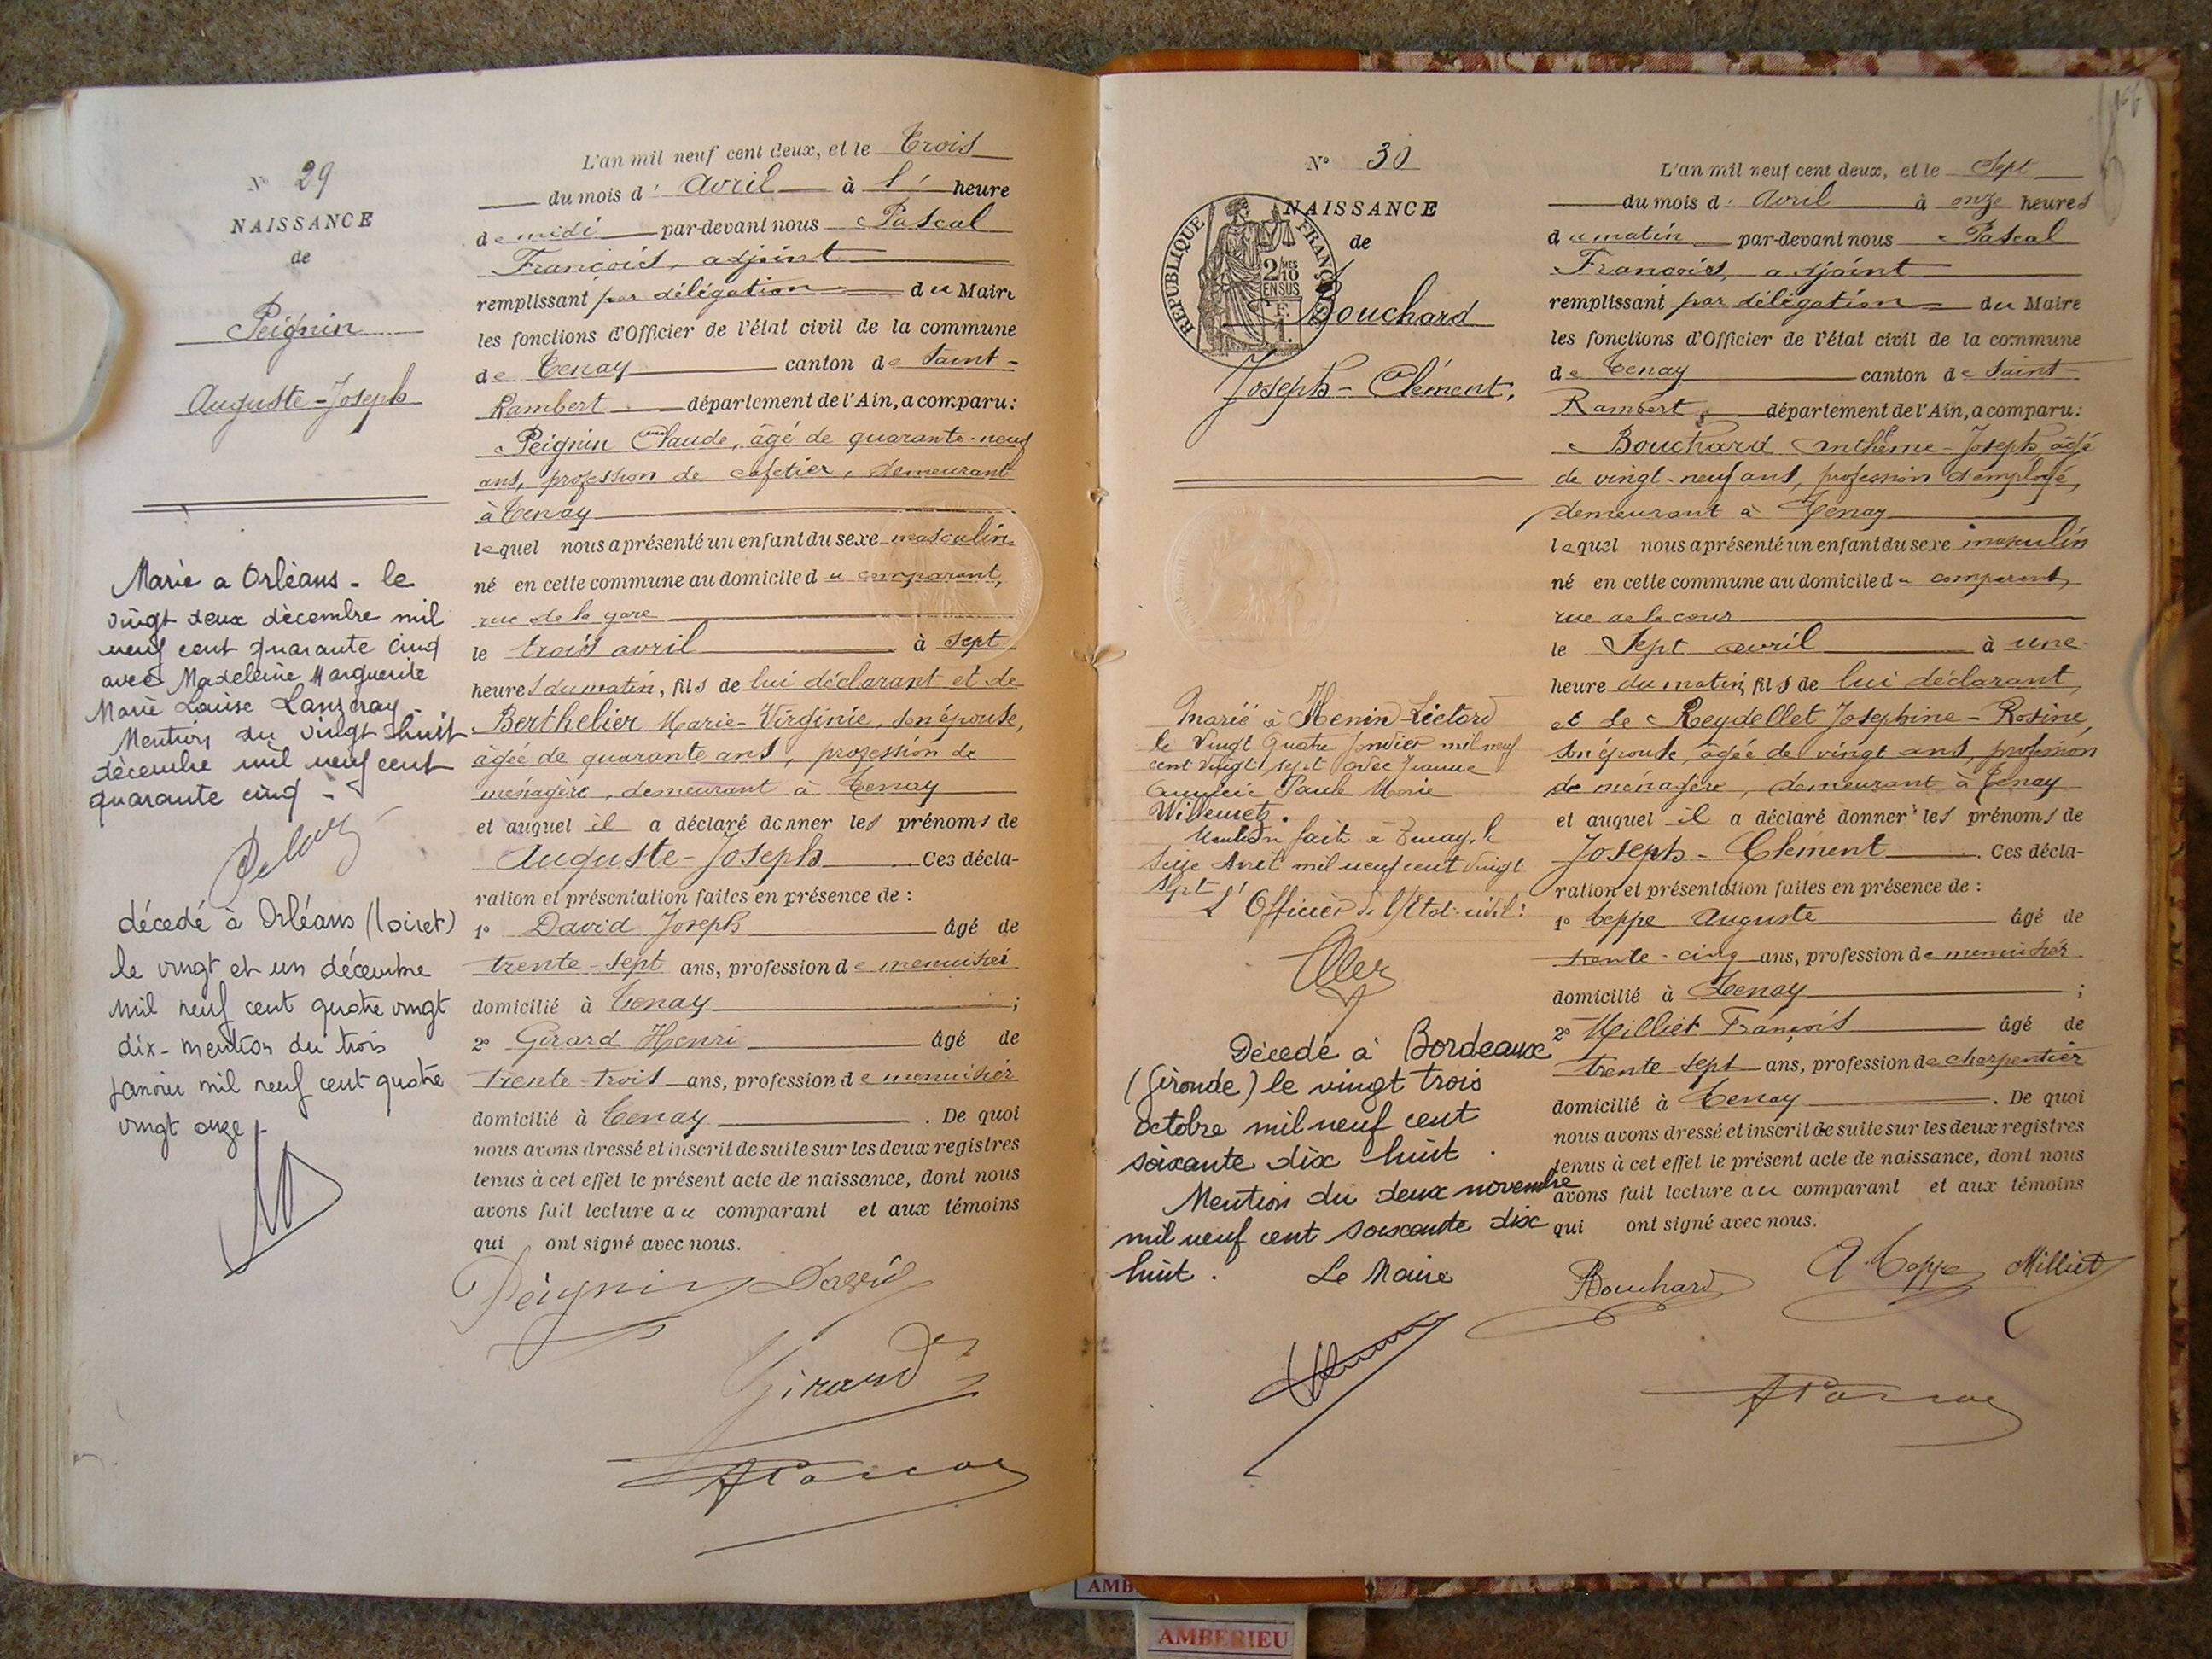 Nº 29
NAISSANCE
de
Peignin
Auguste-Joseph
Marié a Orléans - le
vingt deux décembre mil
neuf cent quarante cinq
avec Madeleine Marguerite
Marie Louise
Mention du vingt huit
décembre mil neuf cent
quarante cinq -
décedé à Orléans (loiret)
le vingt et un décembre
mil neuf cent quatre vingt
dix - mention du trois
janvier mil neuf cent quatre
vingt onze -
L'an mil neuf cent deux, et le Trois
du mois d' Avril à heure
de midi par-devant nous Pascal
François, adjoint
remplissant par délégation du Maire
les fonctions d'Officier de l'état civil de la commune
de Tenay canton de Saint-
Rambert département de l'Ain, a comparu:
Peignin Claude, âgé de quarante-neuf
ans, profession de cafetier, demeurant
à Tenay
lequel nous a présenté un enfant du sexe masculin
né en cette commune au domicile du comparant,
rue de la gare
le trois avril à sept
heures du matin, fils de lui déclarant et de
Berthelier Marie-Virginie, son épouse,
âgée de quarante ans, profession de
ménagère, demeurant à Tenay
et auquel il a déclaré donner les prénoms de
Auguste-Joseph. Ces décla-
ration et présentation faites en présence de :
1º David Joseph âgé de
trente-sept ans, profession de menuisier
domicilié à Tenay ;
2º Girard Henri âgé de
trente-trois ans, profession de menuisier
domicilié à Tenay. De quoi
nous avons dressé et inscrit de suite sur les deux registres
tenus à cet effet le présent acte de naissance, dont nous
avons fait lecture au comparant et aux témoins
qui ont signé avec nous.
Peignin David
Girard
Nº 30
NAISSANCE
de
RÉPUBLIQUE FRANÇAISE
2/10 MES
EN SUS
Bouchard
Joseph-Clément.
Marié à Henin-Liétard
le vingt quatre Janvier mil neuf
cent vingt sept avec Jeanne
Paule Marie
Mention faite à Tenay, le
seize Avril mil neuf cent vingt
sept
L'Officier de l'Etat-civil:
Décedé à Bordeaux
(Gironde) le vingt trois
octobre mil neuf cent
soixante dix huit.
Mention du deux novembre
mil neuf cent soixante dix
huit. Le Maire
L'an mil neuf cent deux, et le Sept
du mois d' Avril à onze heures
du matin par-devant nous Pascal
François, adjoint
remplissant par délégation du Maire
les fonctions d'Officier de l'état civil de la commune
de Tenay canton de Saint-
Rambert, département de l'Ain, a comparu:
Bouchard Anthême-Joseph âgé
de vingt-neuf ans, profession d'employé,
demeurant à Tenay
lequel nous a présenté un enfant du sexe masculin
né en cette commune au domicile du comparant,
rue de la cour
le Sept avril à une
heure du matin, fils de lui déclarant
et de Reydellet Joséphine-Rosine,
son épouse, âgée de vingt ans, profession
de ménagère, demeurant à Tenay
et auquel il a déclaré donner les prénoms de
Joseph-Clément. Ces décla-
ration et présentation faites en présence de :
1º Teppe Auguste âgé de
trente-cinq ans, profession de menuisier
domicilié à Tenay ;
2º Milliet François âgé de
trente-sept ans, profession de charpentier
domicilié à Tenay. De quoi
nous avons dressé et inscrit de suite sur les deux registres
tenus à cet effet le présent acte de naissance, dont nous
avons fait lecture au comparant et aux témoins
qui ont signé avec nous.
Bouchard A. Teppe Milliet
AMBERIEU